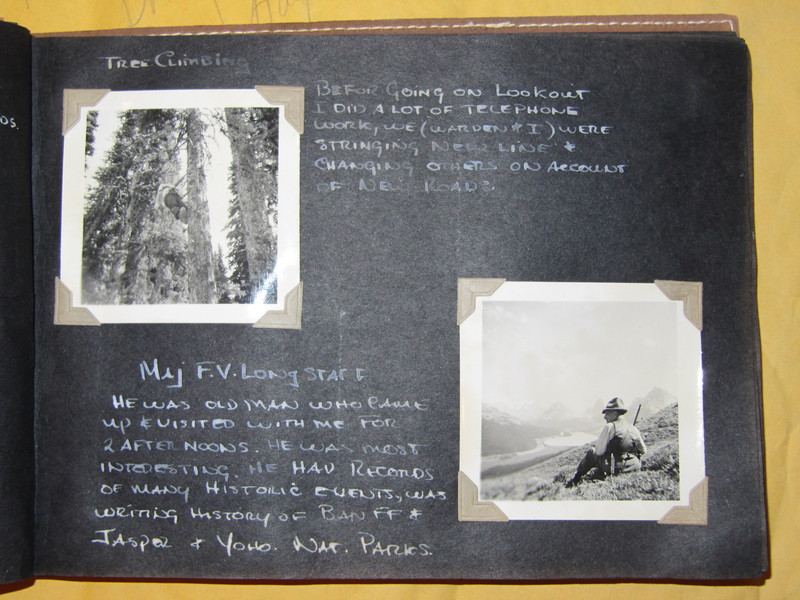 TREE CLIMBING
BEFOR GOING ON LOOKOUT
I DID A LOT OF TELEPHONE
WORK, WE (WARDEN & I) WERE
STRINGING NEW LINE &
CHANGING OTHERS ON ACCOUNT
OF NEW ROADS.
DS.
MAJ F.V. LONGSTAFF
HE WAS OLD MAN WHO CAME
UP & VISITED WITH ME FOR
2 AFTERNOONS. HE WAS MOST
INTERESTING. HE HAD RECORDS
OF MANY HISTORIC EVENTS, WAS
WRITING HISTORY OF BANFF &
JASPER & YOHO. NAT. PARKS.